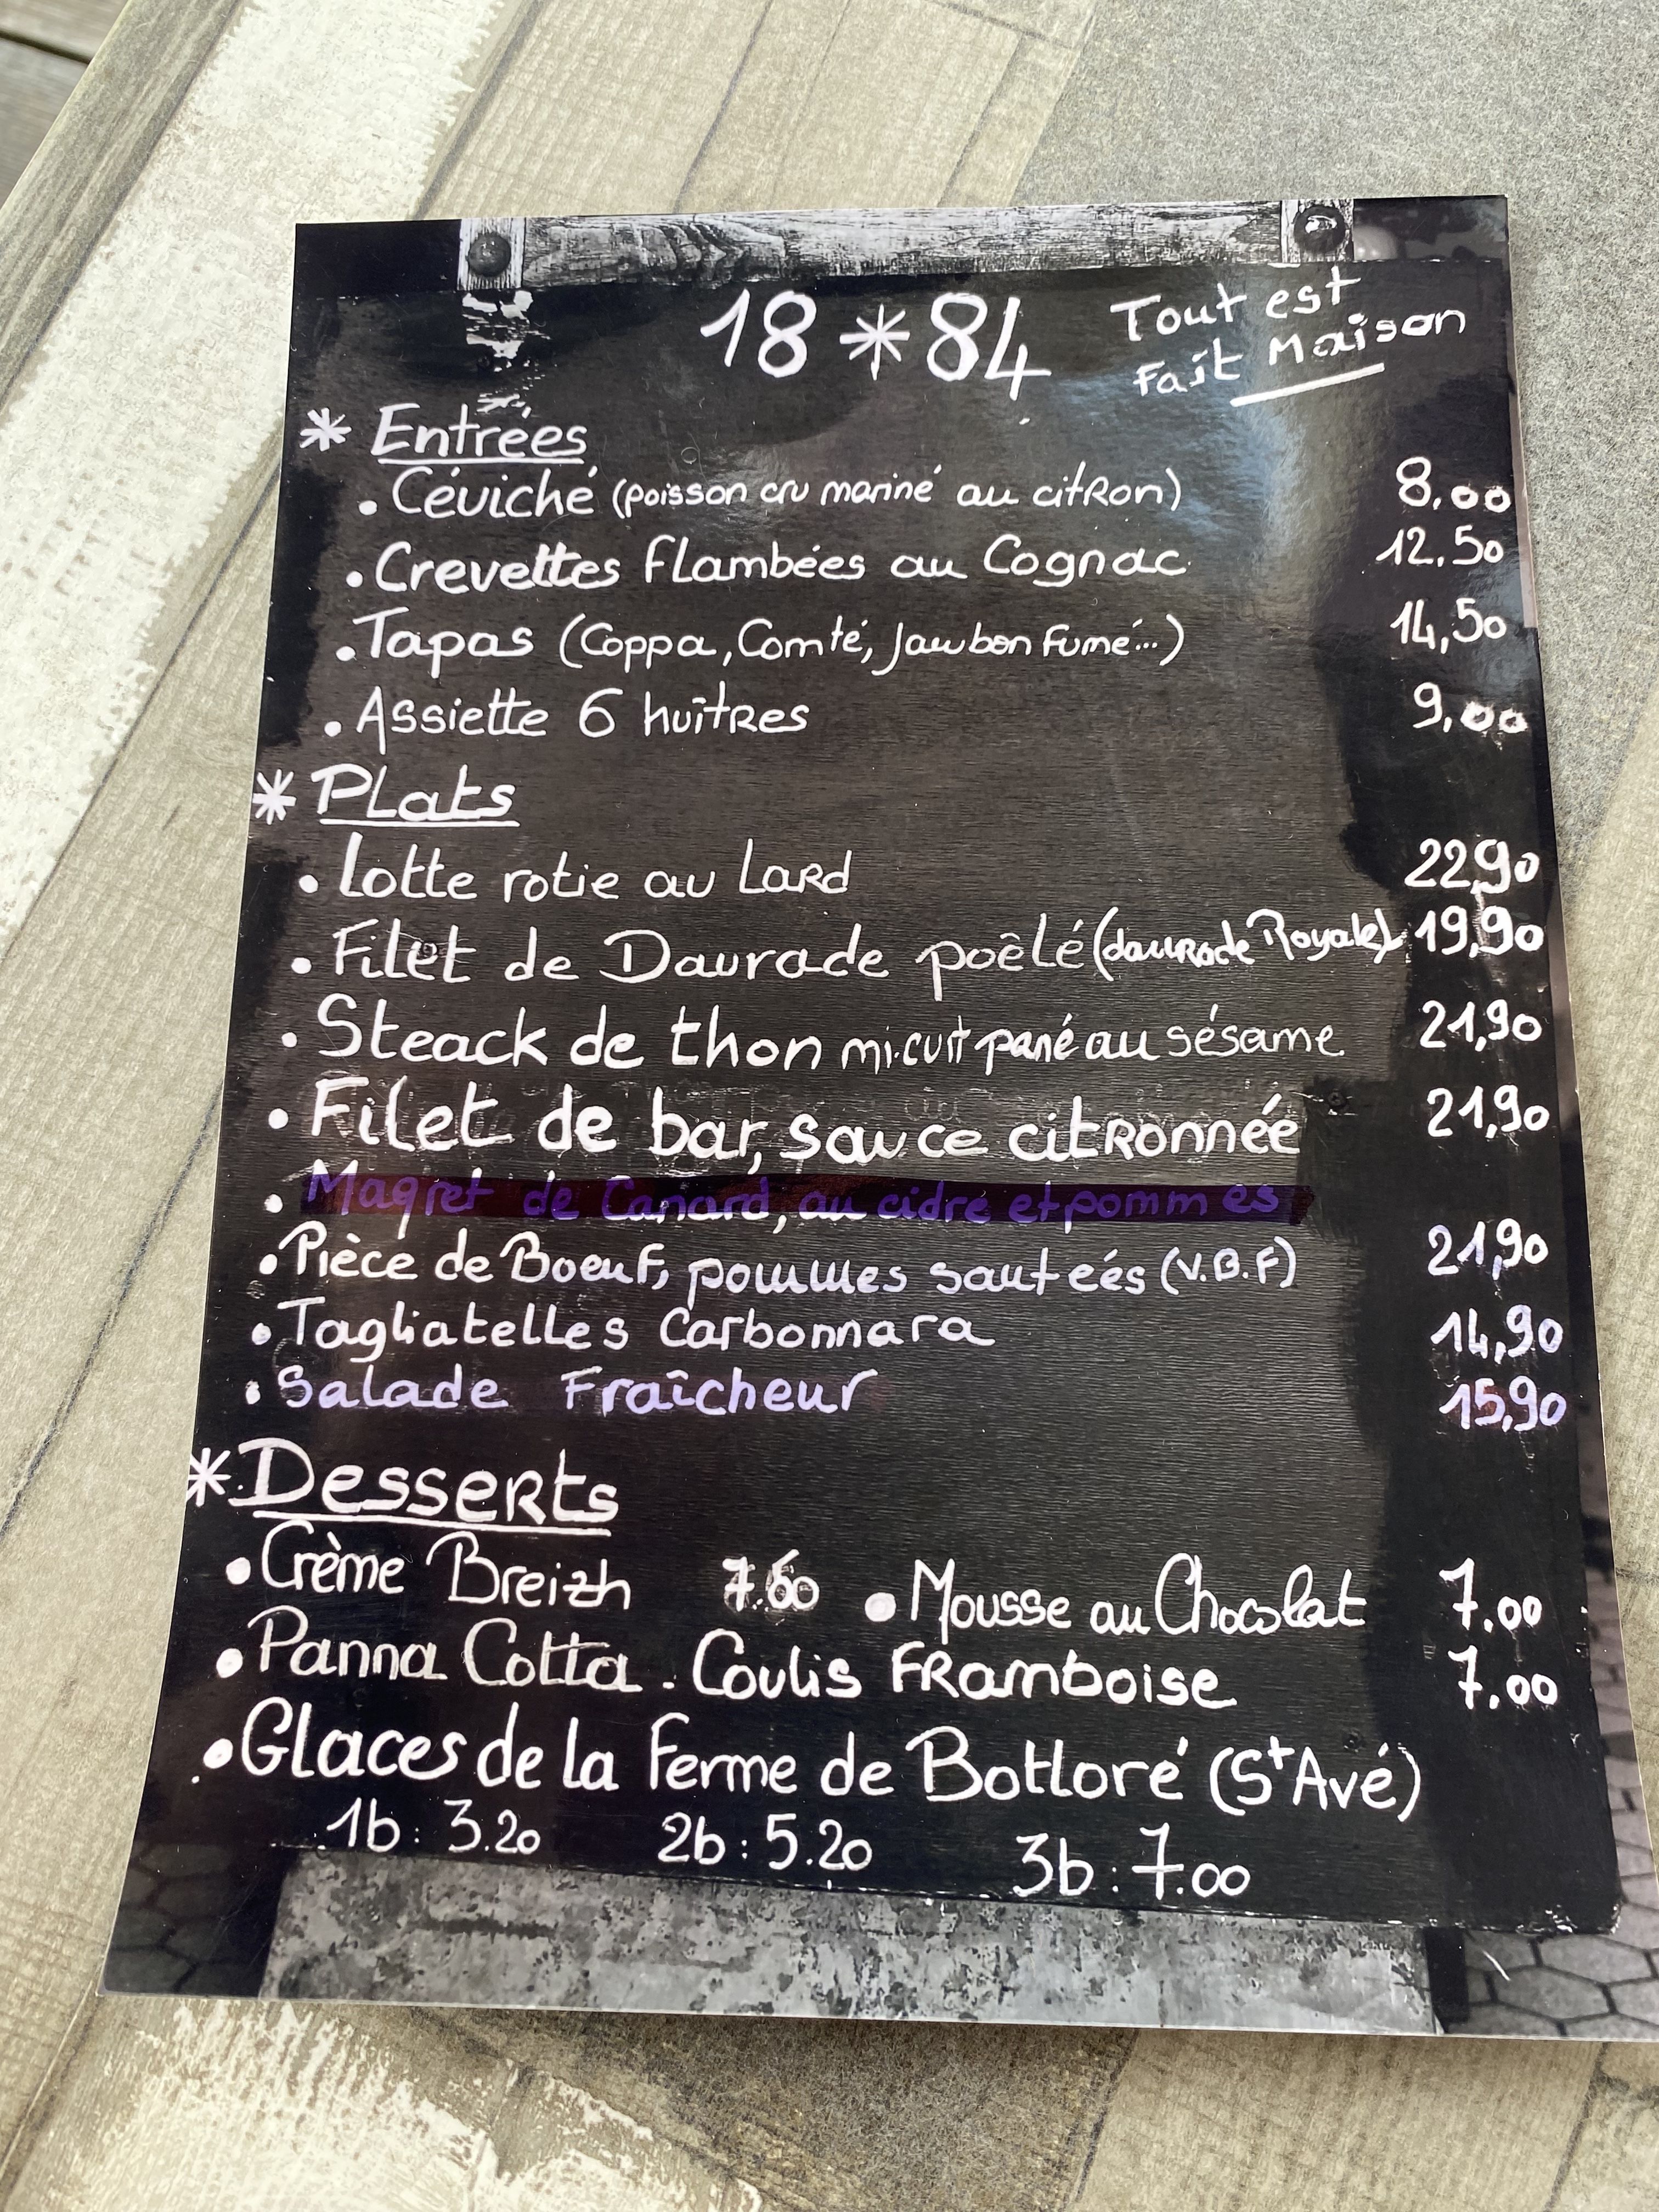 18*84
Tout est
Fait Maison
* Entrées
• Céviché (poisson cru mariné au citron) 8,00
• Crevettes Flambées au Cognac 12,50
• Tapas (Coppa, Comté, Jambon Fumé...) 14,50
• Assiette 6 huîtres 9,00
* Plats
• Lotte rotie au Lard 22,90
• Filet de Daurade poêlé (daurade Royale) 19,90
• Steack de thon mi-cuit pané au sésame 21,90
• Filet de bar, sauce citronnée 21,90
• Magret de Canard, au cidre et pommes
• Pièce de Boeuf, pommes sauteés (V.B.F) 21,90
• Tagliatelles Carbonnara 14,90
• Salade Fraîcheur 15,90
* Desserts
• Crème Breizh 7.60 • Mousse au Chocolat 7.00
• Panna Cotta . Coulis Framboise 7.00
• Glaces de la Ferme de Botloré (St Avé)
1b : 3.20 2b : 5.20 3b : 7.00